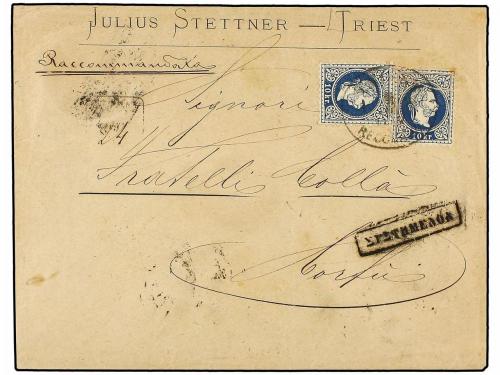 JULIUS STETTNER — TRIEST
Raccommandata
10 kr.
10 kr.
Signori
24
Fratelli Collà
ΣΥΣΤΗΜΕΝΟΝ
Corfù